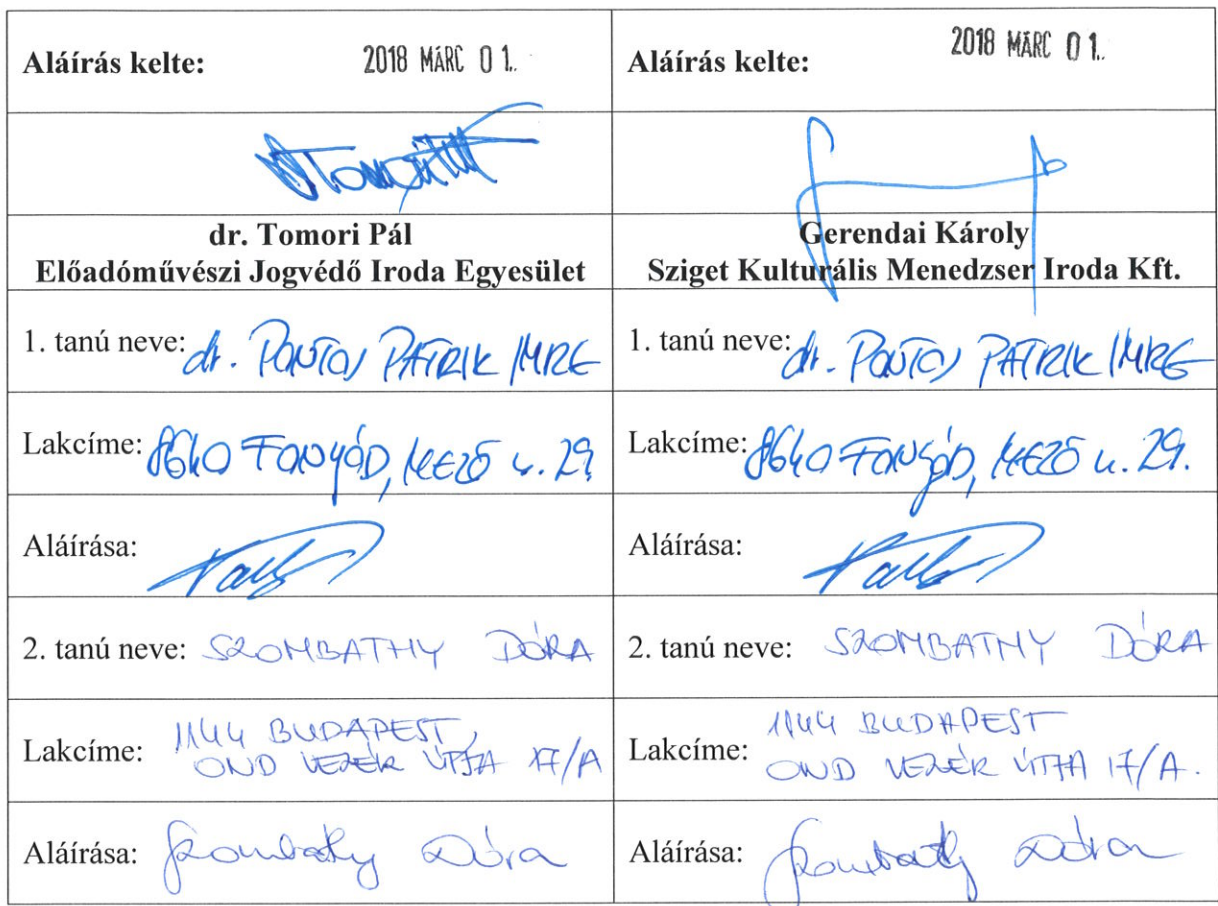 Aláírás kelte: 2018 MÁRC 01.
Aláírás kelte: 2018 MÁRC 01.
dr. Tomori Pál
Előadóművészi Jogvédő Iroda Egyesület
Gerendai Károly
Sziget Kulturális Menedzser Iroda Kft.
1. tanú neve: dr. PATRIK IMRE
1. tanú neve: dr. PATRIK IMRE
Lakcíme: 8640 FONYÓD, MEZŐ u. 29.
Lakcíme: 8640 FONYÓD, MEZŐ u. 29.
Aláírása:
Aláírása:
2. tanú neve: SZOMBATHY DÓRA
2. tanú neve: SZOMBATHY DÓRA
Lakcíme: 1144 BUDAPEST,
OND VEZÉR ÚTJA 17/A
Lakcíme: 1144 BUDAPEST
OND VEZÉR ÚTJA 17/A.
Aláírása: Szombathy Dóra
Aláírása: Szombathy Dóra